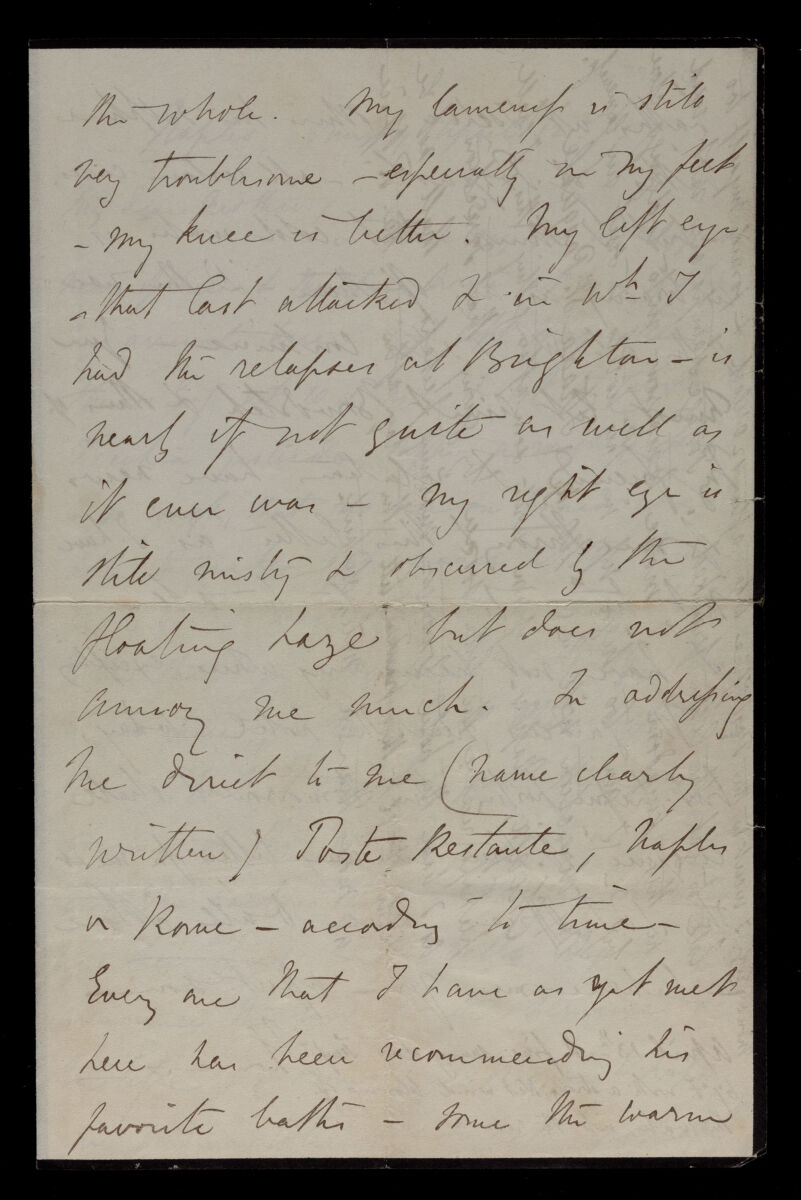 the whole. My lameness is still
very troublesome - especially in my feet
- my knee is better. My left eye
- that last attacked & in wh I
had the relapses at Brighton - is
nearly if not quite as well as
it ever was - my right eye is
still misty & obscured by the
floating haze but does not
annoy me much. In addressing
me direct to me (name clearly
written) Poste Restante, Naples
or Rome - according to time -
Every one that I have as yet met
here has been recommending his
favorite baths - some the warm